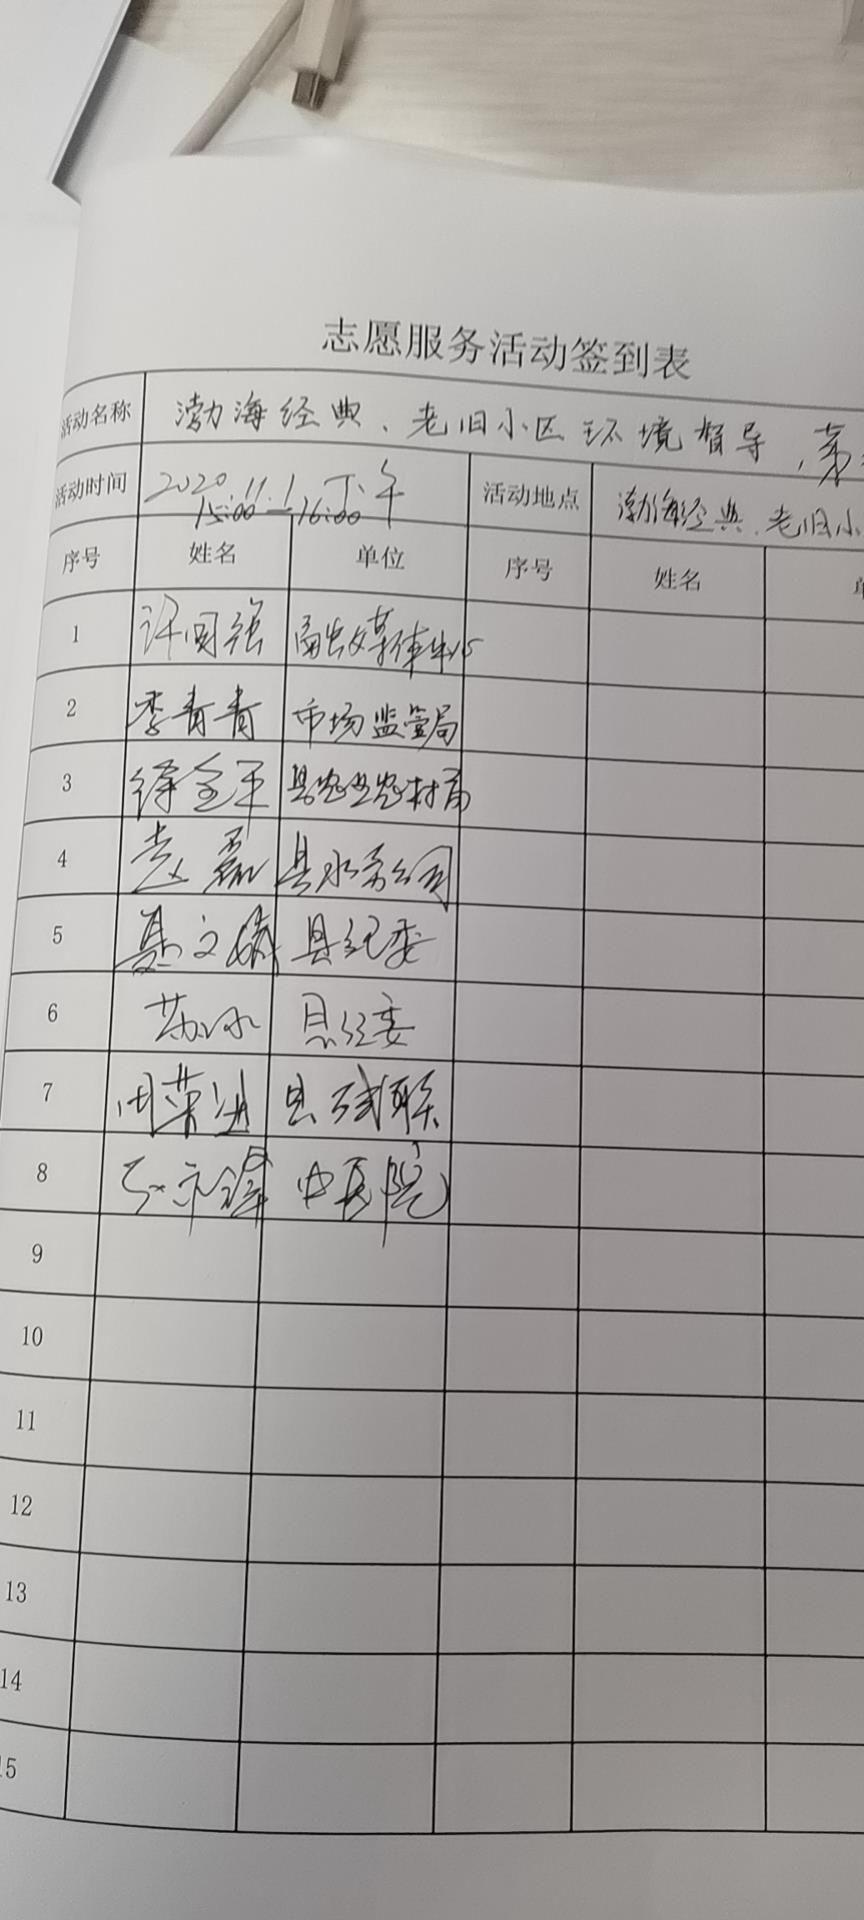 志愿服务活动签到表
活动名称 渤海经典、老旧小区环境督导,
活动时间 2020.11.1 下午 15:00—16:00 活动地点 渤海经典、老旧小
序号 姓名 单位 序号 姓名
1 许国强 融媒体中心
2 李青青 市场监管局
3 徐金平 县农业农村局
4 赵磊 县水务公司
5 聂文娟 县纪委
6 苏冰 县纪委
7 田荣进 县残联
8 中医院
9
10
11
12
13
14
15